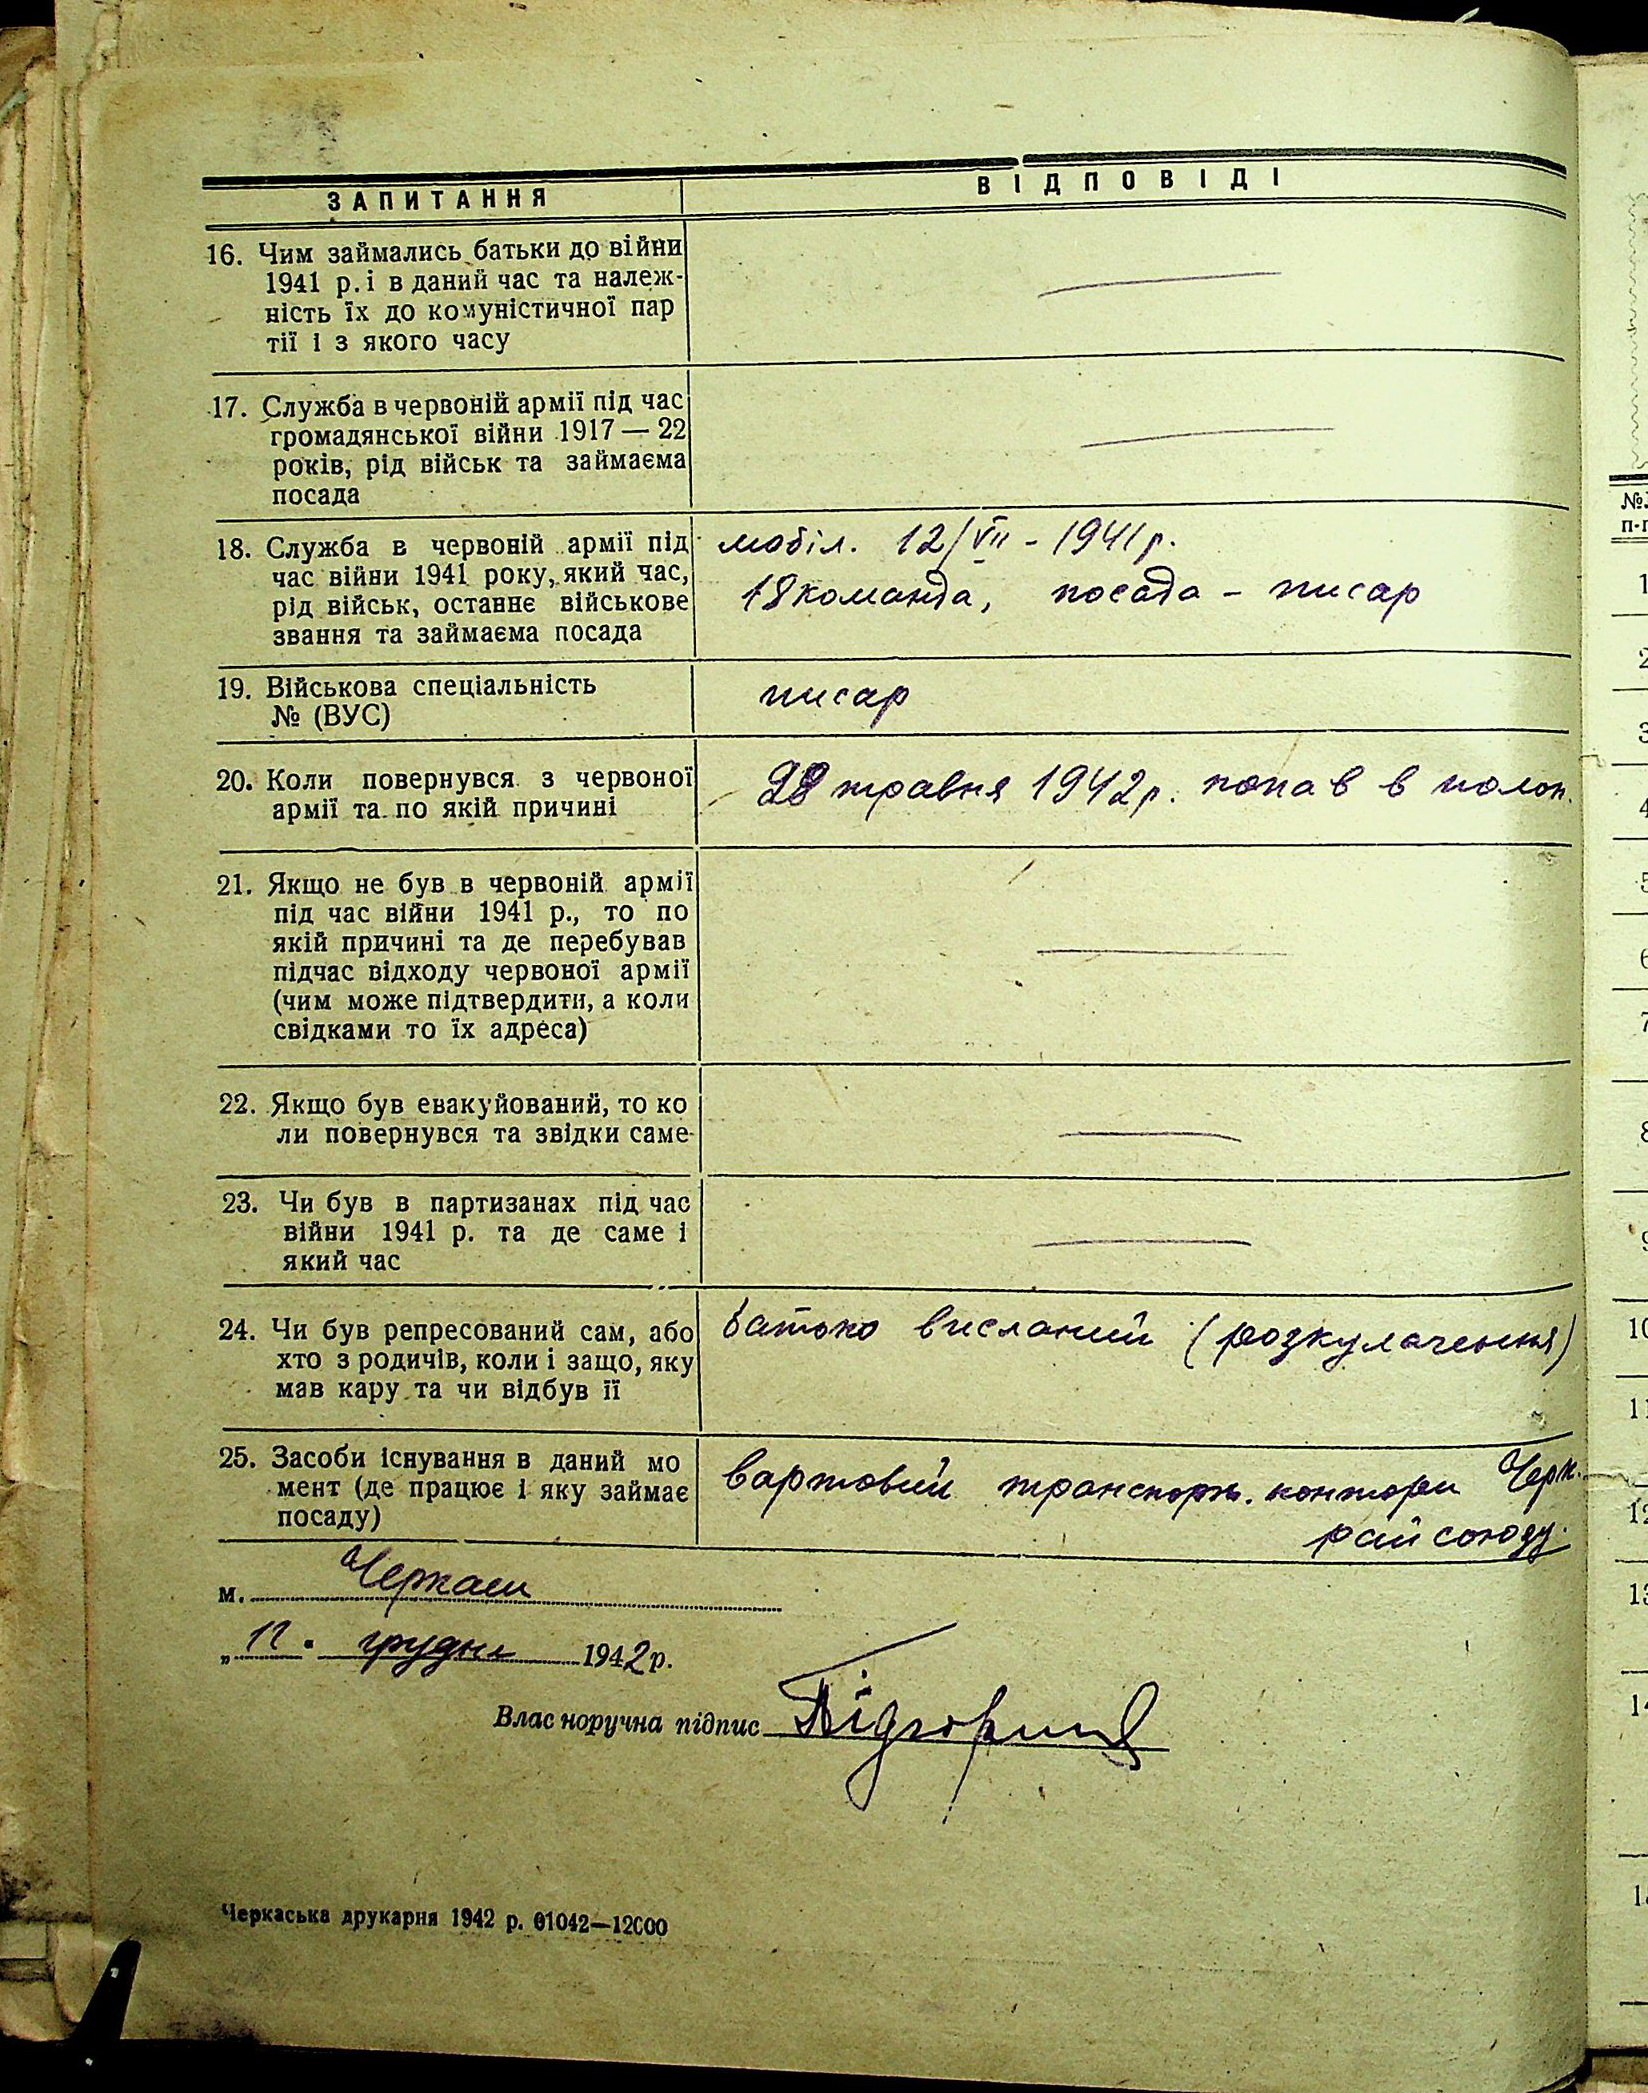 ЗАПИТАННЯ
ВІДПОВІДІ
16. Чим займались батьки до війни
1941 р. і в даний час та належ-
ність їх до комуністичної пар
тії і з якого часу
17. Служба в червоній армії під час
громадянської війни 1917 — 22
років, рід військ та займаєма
посада
18. Служба в червоній армії під
час війни 1941 року, який час,
рід військ, останнє військове
звання та займаєма посада
мобіл. 12/VII - 1941 р.
18 команда, посада - писар
19. Військова спеціальність
№ (ВУС)
писар
20. Коли повернувся з червоної
армії та по якій причині
28 травня 1942 р. попав в полон.
21. Якщо не був в червоній армії
під час війни 1941 р., то по
якій причині та де перебував
підчас відходу червоної армії
(чим може підтвердити, а коли
свідками то їх адреса)
22. Якщо був евакуйований, то ко
ли повернувся та звідки саме
23. Чи був в партизанах під час
війни 1941 р. та де саме і
який час
24. Чи був репресований сам, або
хто з родичів, коли і защо, яку
мав кару та чи відбув її
батько висланий (розкулачення)
25. Засоби існування в даний мо
мент (де працює і яку займає
посаду)
вартовий транспорт. контори Черк.
райсоюзу.
м. Черкаси
„ " грудня 1942 р.
Власноручна підпис
Черкаська друкарня 1942 р. 01042—12000
№№
п-п
1
2
3
4
5
6
7
8
9
10
11
12
13
14